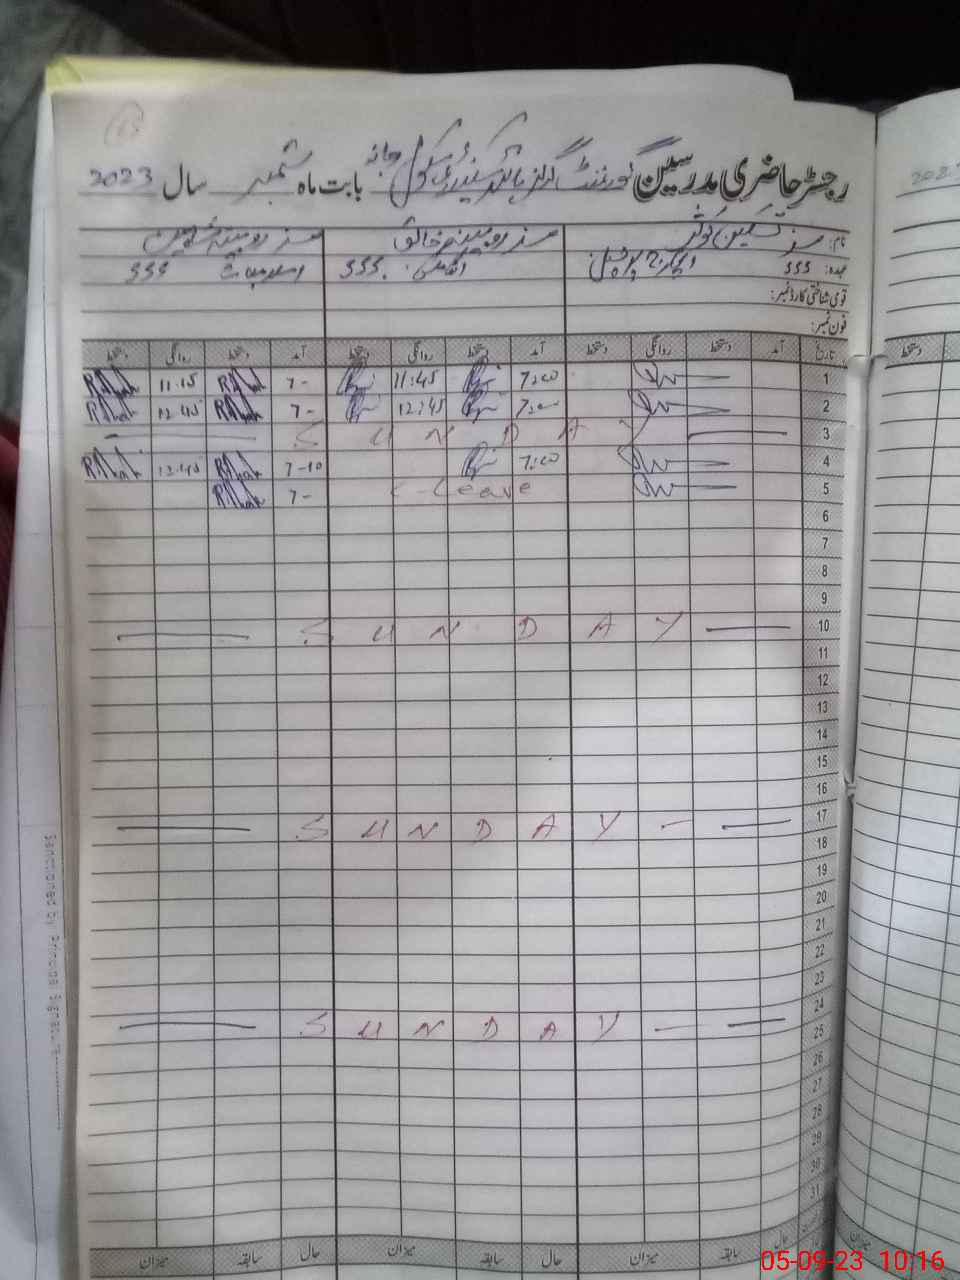 رجسٹر حاضری مدرسین گورنمنٹ گرلز ہائر سیکنڈری سکول بابت ماہ ستمبر سال 2023
نام: مسز تسکین کوثر مسز روبینہ خالق مسز روبینہ شاہین
عہدہ: SSS انچارج پرنسپل SSS اسلامیات SSS
قومی شناختی کارڈ نمبر:
فون نمبر:
تاریخ آمد دستخط روانگی دستخط آمد دستخط روانگی دستخط آمد دستخط روانگی دستخط
1 7:00 11:45 7- 11:15
2 7:00 12:45 7- 12:45
3 SUNDAY
4 7:00 7-10 12:45
5 C-Leave 7-
6
7
8
9
10 SUNDAY
11
12
13
14
15
16
17 SUNDAY
18
19
20
21
22
23
24 SUNDAY
25
26
27
28
29
30
31
میزان سابقہ حال میزان سابقہ حال میزان سابقہ حال
Sanctioned by Principal Signature
05-09-23 10:16